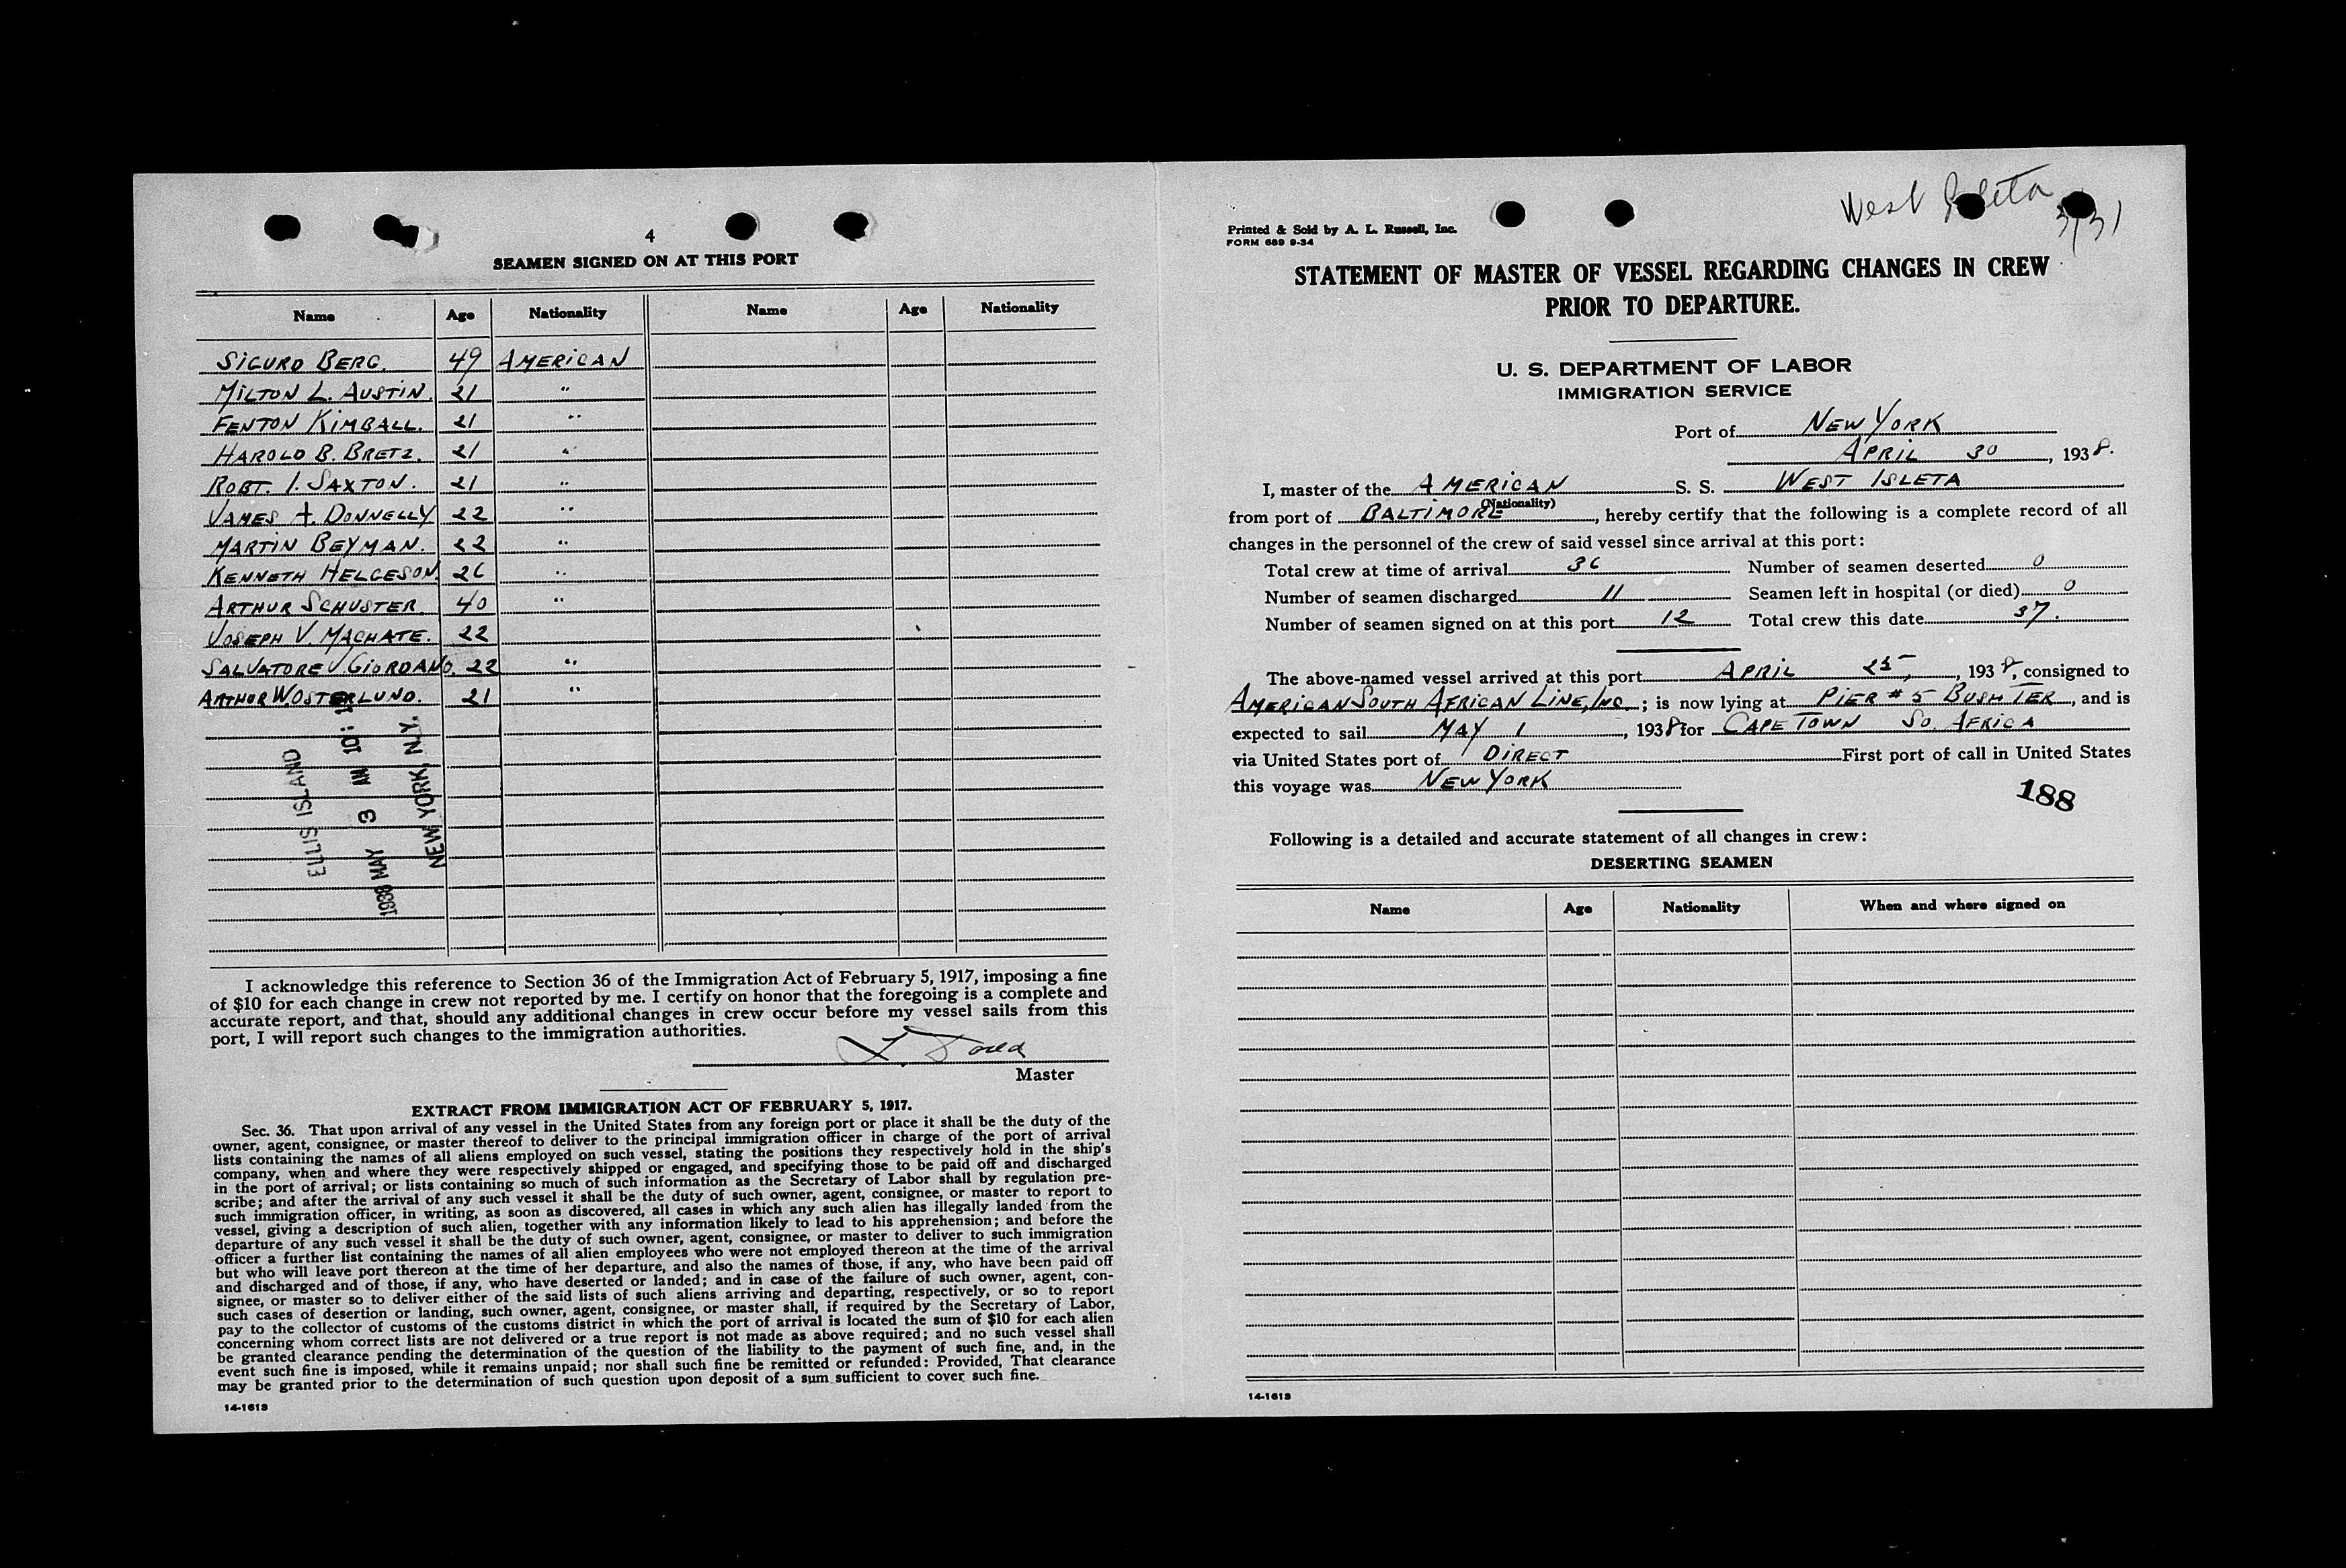 4
SEAMEN SIGNED ON AT THIS PORT
Name Age Nationality Name Age Nationality
SIGURD BERG. 49 AMERICAN
MILTON L. AUSTIN. 21 "
FENTON KIMBALL. 21 "
HAROLD B. BRETZ. 21 "
ROBT. I. SAXTON. 21 "
JAMES A. DONNELLY 22 "
MARTIN BEYMAN. 22 "
KENNETH HELGESON. 26 "
ARTHUR SCHUSTER. 40 "
JOSEPH V. MACHATE. 22
SALVATORE J. GIORDANO. 22 "
ARTHUR W. OSTERLUND. 21 "
ELLIS ISLAND
1938 MAY 3 AM 10:
NEW YORK, N.Y.
I acknowledge this reference to Section 36 of the Immigration Act of February 5, 1917, imposing a fine
of $10 for each change in crew not reported by me. I certify on honor that the foregoing is a complete and
accurate report, and that, should any additional changes in crew occur before my vessel sails from this
port, I will report such changes to the immigration authorities.
Master
EXTRACT FROM IMMIGRATION ACT OF FEBRUARY 5, 1917.
Sec. 36. That upon arrival of any vessel in the United States from any foreign port or place it shall be the duty of the
owner, agent, consignee, or master thereof to deliver to the principal immigration officer in charge of the port of arrival
lists containing the names of all aliens employed on such vessel, stating the positions they respectively hold in the ship's
company, when and where they were respectively shipped or engaged, and specifying those to be paid off and discharged
in the port of arrival; or lists containing so much of such information as the Secretary of Labor shall by regulation pre-
scribe; and after the arrival of any such vessel it shall be the duty of such owner, agent, consignee, or master to report to
such immigration officer, in writing, as soon as discovered, all cases in which any such alien has illegally landed from the
vessel, giving a description of such alien, together with any information likely to lead to his apprehension; and before the
departure of any such vessel it shall be the duty of such owner, agent, consignee, or master to deliver to such immigration
officer a further list containing the names of all alien employees who were not employed thereon at the time of the arrival
but who will leave port thereon at the time of her departure, and also the names of those, if any, who have been paid off
and discharged and of those, if any, who have deserted or landed; and in case of the failure of such owner, agent, con-
signee, or master so to deliver either of the said lists of such aliens arriving and departing, respectively, or so to report
such cases of desertion or landing, such owner, agent, consignee, or master shall, if required by the Secretary of Labor,
pay to the collector of customs of the customs district in which the port of arrival is located the sum of $10 for each alien
concerning whom correct lists are not delivered or a true report is not made as above required; and no such vessel shall
be granted clearance pending the determination of the question of the liability to the payment of such fine, and, in the
event such fine is imposed, while it remains unpaid; nor shall such fine be remitted or refunded: Provided, That clearance
may be granted prior to the determination of such question upon deposit of a sum sufficient to cover such fine.
14-1613
West Isleta
3/31
Printed & Sold by A. L. Russell, Inc.
FORM 689 9-34
STATEMENT OF MASTER OF VESSEL REGARDING CHANGES IN CREW
PRIOR TO DEPARTURE.
U. S. DEPARTMENT OF LABOR
IMMIGRATION SERVICE
Port of NEW YORK
APRIL 30, 1938.
I, master of the AMERICAN S. S. WEST ISLETA
(Nationality)
from port of BALTIMORE, hereby certify that the following is a complete record of all
changes in the personnel of the crew of said vessel since arrival at this port:
Total crew at time of arrival 36 Number of seamen deserted 0
Number of seamen discharged 11 Seamen left in hospital (or died) 0
Number of seamen signed on at this port 12 Total crew this date 37.
The above-named vessel arrived at this port APRIL 25, 1938, consigned to
AMERICAN SOUTH AFRICAN LINE, INC; is now lying at PIER # 5 BUSH TER, and is
expected to sail MAY 1, 1938 for CAPE TOWN SO. AFRICA
via United States port of DIRECT First port of call in United States
this voyage was NEW YORK
188
Following is a detailed and accurate statement of all changes in crew:
DESERTING SEAMEN
Name Age Nationality When and where signed on
14-1613